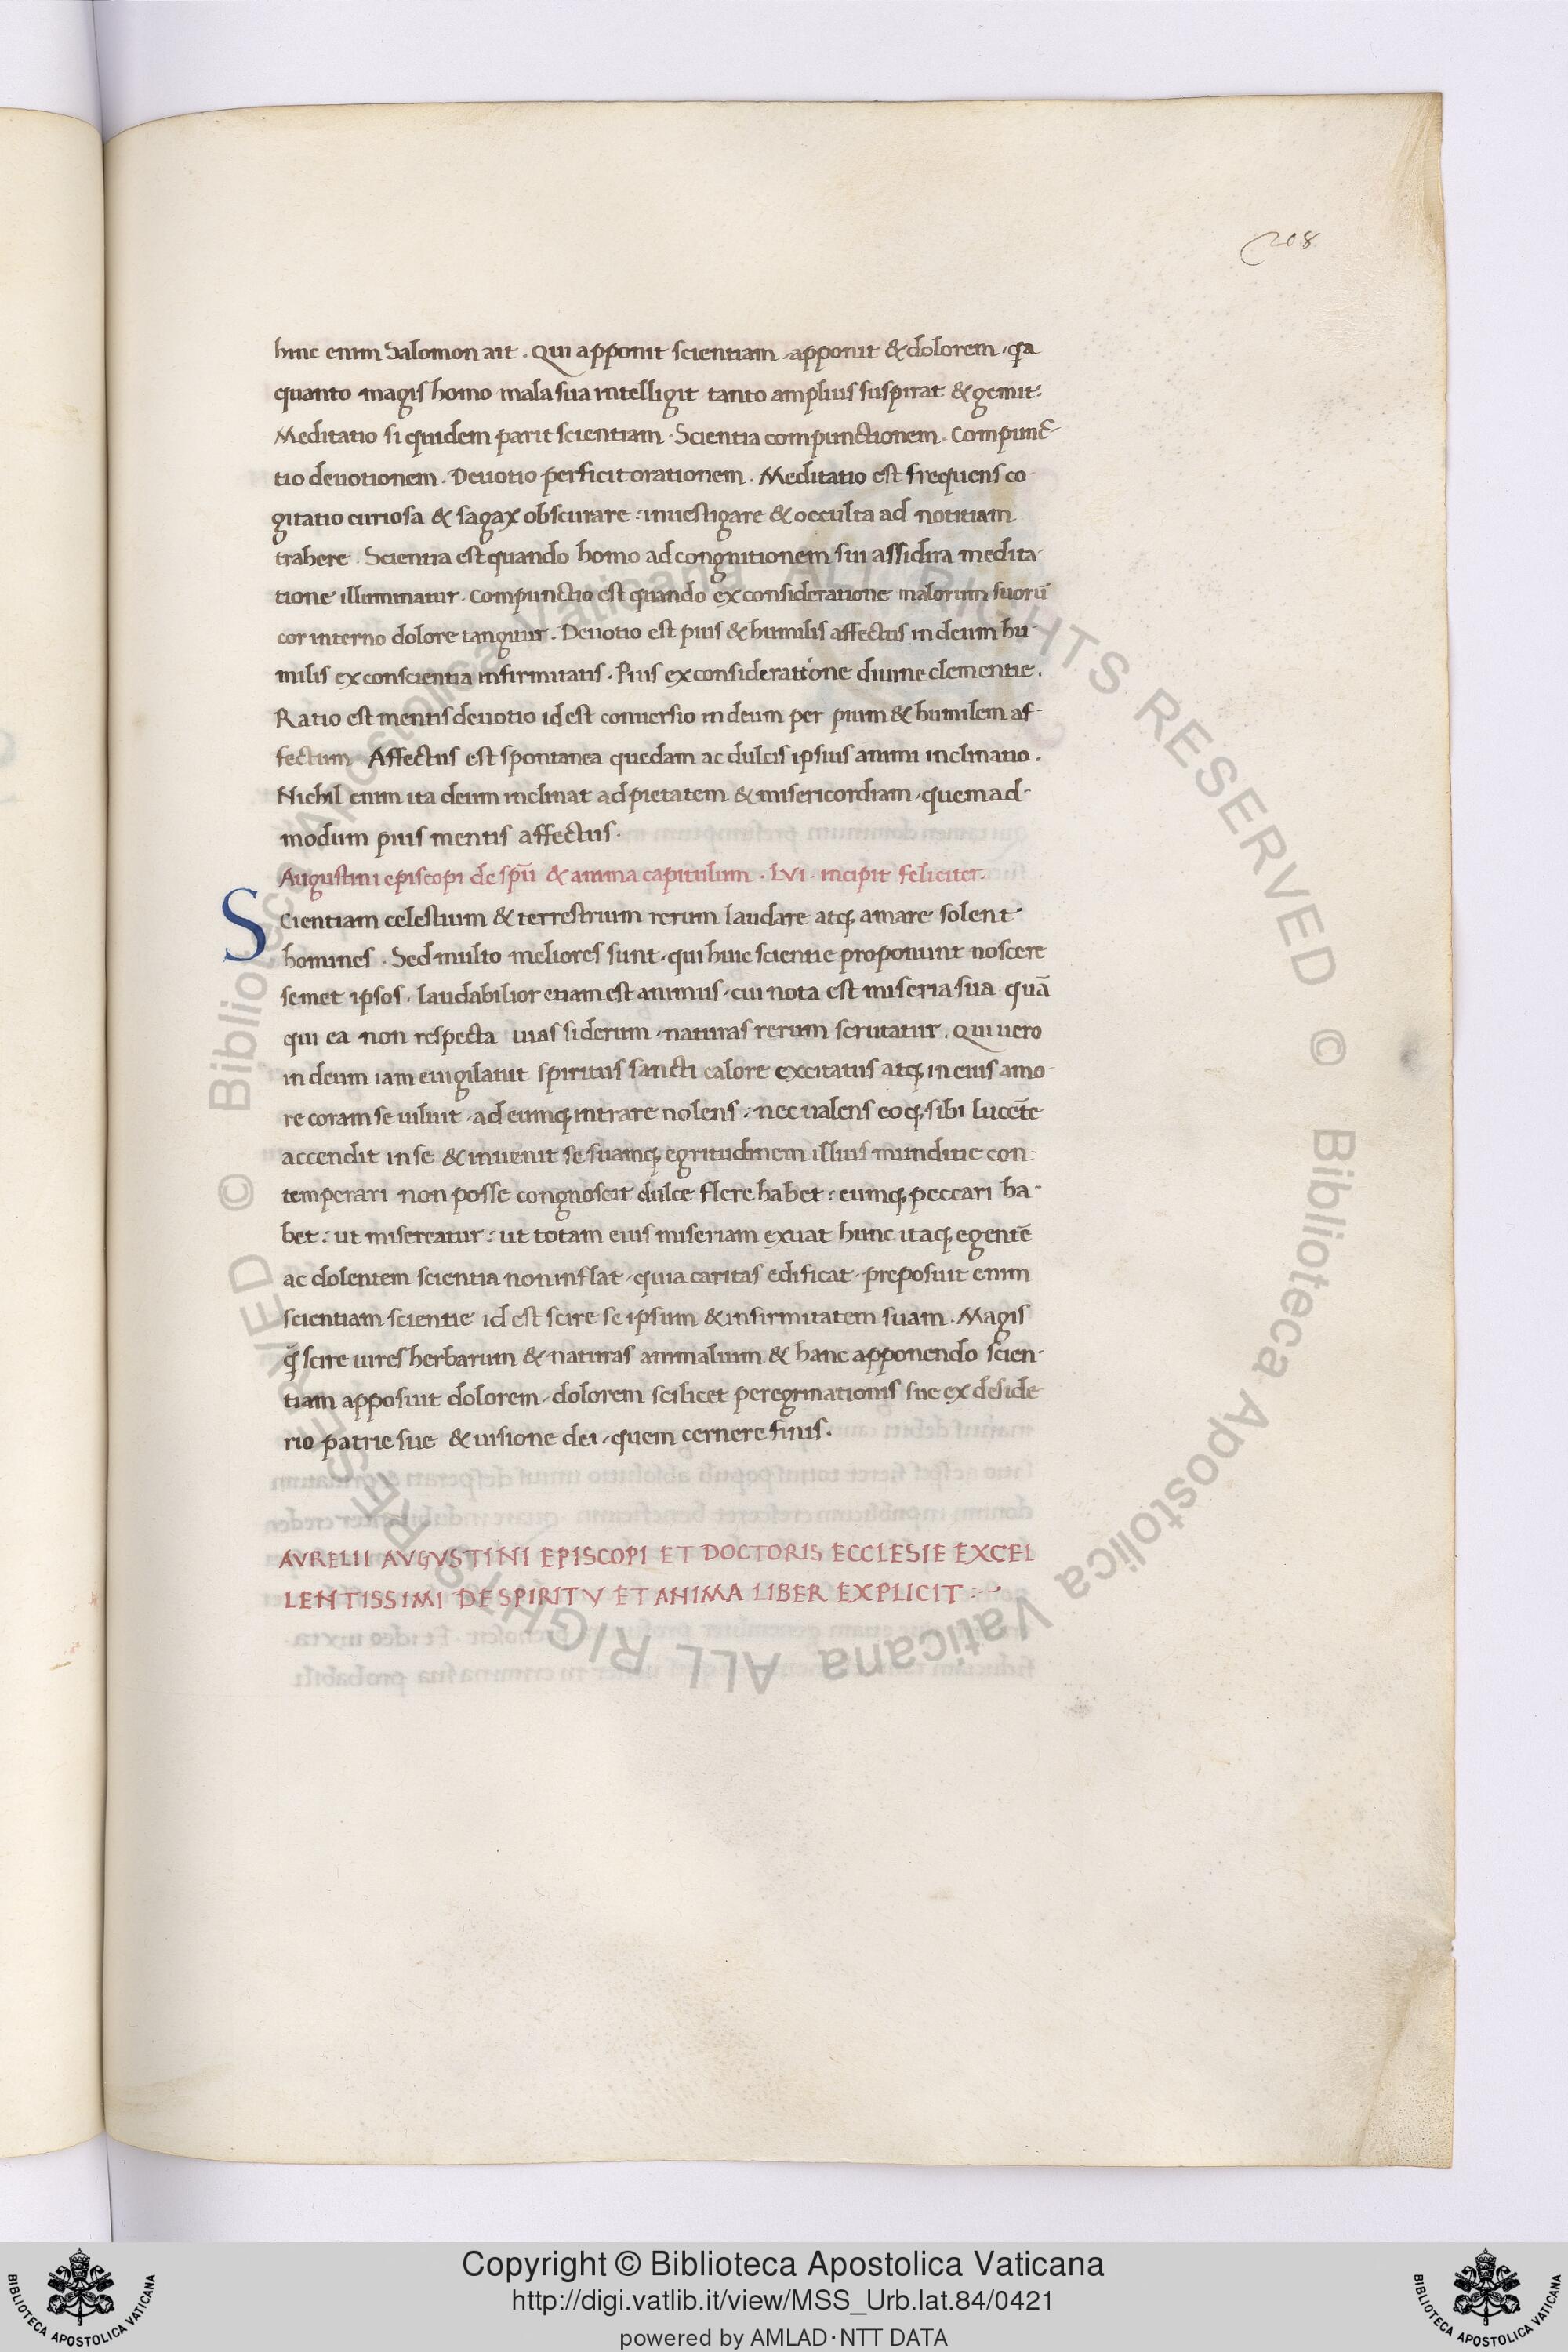 208
hinc enim Salomon ait . Qui apponit scientiam . apponit & dolorem . q̃a
quanto magis homo mala sua intelligit tanto amplius suspirat & gemit .
Meditatio si quidem parit scientiam . Scientia compunctionem . Compunc-
tio deuotionem . Deuotio perficit orationem . Meditatio est frequens co-
gitatio curiosa & sagax obscurare : inuestigare & occulta ad notitiam
trahere . Scientia est quando homo ad congnitionem sui assidua medita-
tione illuminatur . Compunctio est quando ex consideratione malorum suorū
cor interno dolore tangitur . Deuotio est pius & humilis affectus in deum hu-
milis ex conscientia infirmitatis . Pius ex consideratione diuine clementie .
Ratio est mentis deuotio id est conuersio in deum per pium & humilem af-
fectum Affectus est spontanea quedam ac dulcis ipsius animi inclinatio .
Nichil enim ita deum inclinat ad pietatem & misericordiam . quemad-
modum pius mentis affectus .
Augustini episcopi de spū & anima capitulum . LVI . incipit feliciter .
Scientiam celestium & terrestrium rerum laudare atq; amare solent
homines . Sed multo meliores sunt . qui huic scientie proponunt noscere
semet ipsos . laudabilior etiam est animus . cui nota est miseria sua quā
qui ea non respecta uias siderum . naturas rerum scrutatur . Qui uero
in deum iam euigilauit spiritus sancti calore excitatus atq; in eius amo-
re coram se uiluit . ad eumq; intrare nolens : nec ualens eoq; sibi lucēte
accendit in se & inuenit se suamq; egritudinem illius munditie con-
temperari non posse congnoscit dulce flere habet : eumq; peccari ha-
bet : ut misereatur : ut totam eius miseriam exuat hunc itaq; egentē
ac dolentem scientia non inflat . quia caritas edificat . preposuit enim
scientiam scientie id est scire se ipsum & infirmitatem suam . Magis
q̃ scire uires herbarum & naturas animalium & hanc apponendo scien-
tiam apposuit dolorem . dolorem scilicet peregrinationis sue ex deside-
rio patrie sue & uisione dei . quem cernere finis .
AVRELII AVGVSTINI EPISCOPI ET DOCTORIS ECCLESIE EXCEL
LENTISSIMI DE SPIRITV ET ANIMA LIBER EXPLICIT :~
© Biblioteca Apostolica Vaticana ALL RIGHTS RESERVED © Biblioteca Apostolica Vaticana ALL RIGHTS RESERVED
BIBLIOTECA APOSTOLICA VATICANA
Copyright © Biblioteca Apostolica Vaticana
http://digi.vatlib.it/view/MSS_Urb.lat.84/0421
powered by AMLAD·NTT DATA
BIBLIOTECA APOSTOLICA VATICANA